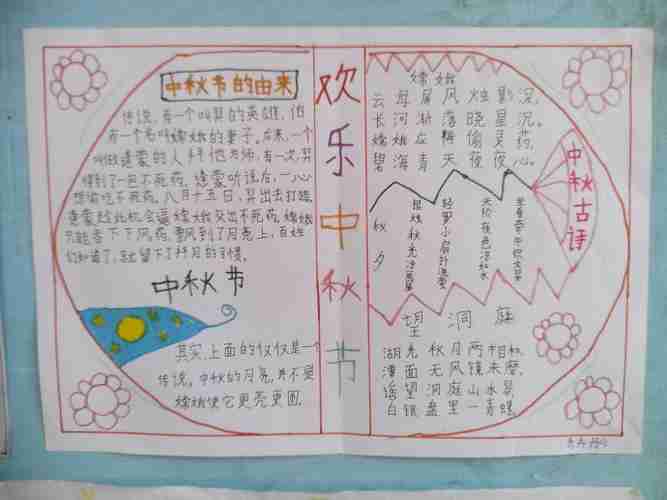 中秋节的由来
传说,有一个叫羿的英雄,他
有一个名叫嫦娥的妻子。后来,一个
叫做逢蒙的人拜他为师,有一次,羿
得到了一包不死药,逢蒙听说后,一心
想偷吃不死药,八月十五日,羿出去打猎,
逢蒙趁此机会逼嫦娥交出不死药,嫦娥
只能吞下不死药,飘到了月亮上,百姓
们知道了,就留下了拜月的习惯。
中秋节
其实,上面的仅仅是一个
传说。中秋的月亮,并不是
嫦娥使它更亮更圆
欢乐中秋节
嫦娥
云母屏风烛影深,
长河渐落晓星沉。
嫦娥应悔偷灵药,
碧海青天夜夜心。
中秋古诗
秋夕
银烛秋光冷画屏
轻罗小扇扑流萤
天阶夜色凉如水
坐看牵牛织女星
望洞庭
湖光秋月两相和,
潭面无风镜未磨。
遥望洞庭山水
白银盘里一青螺